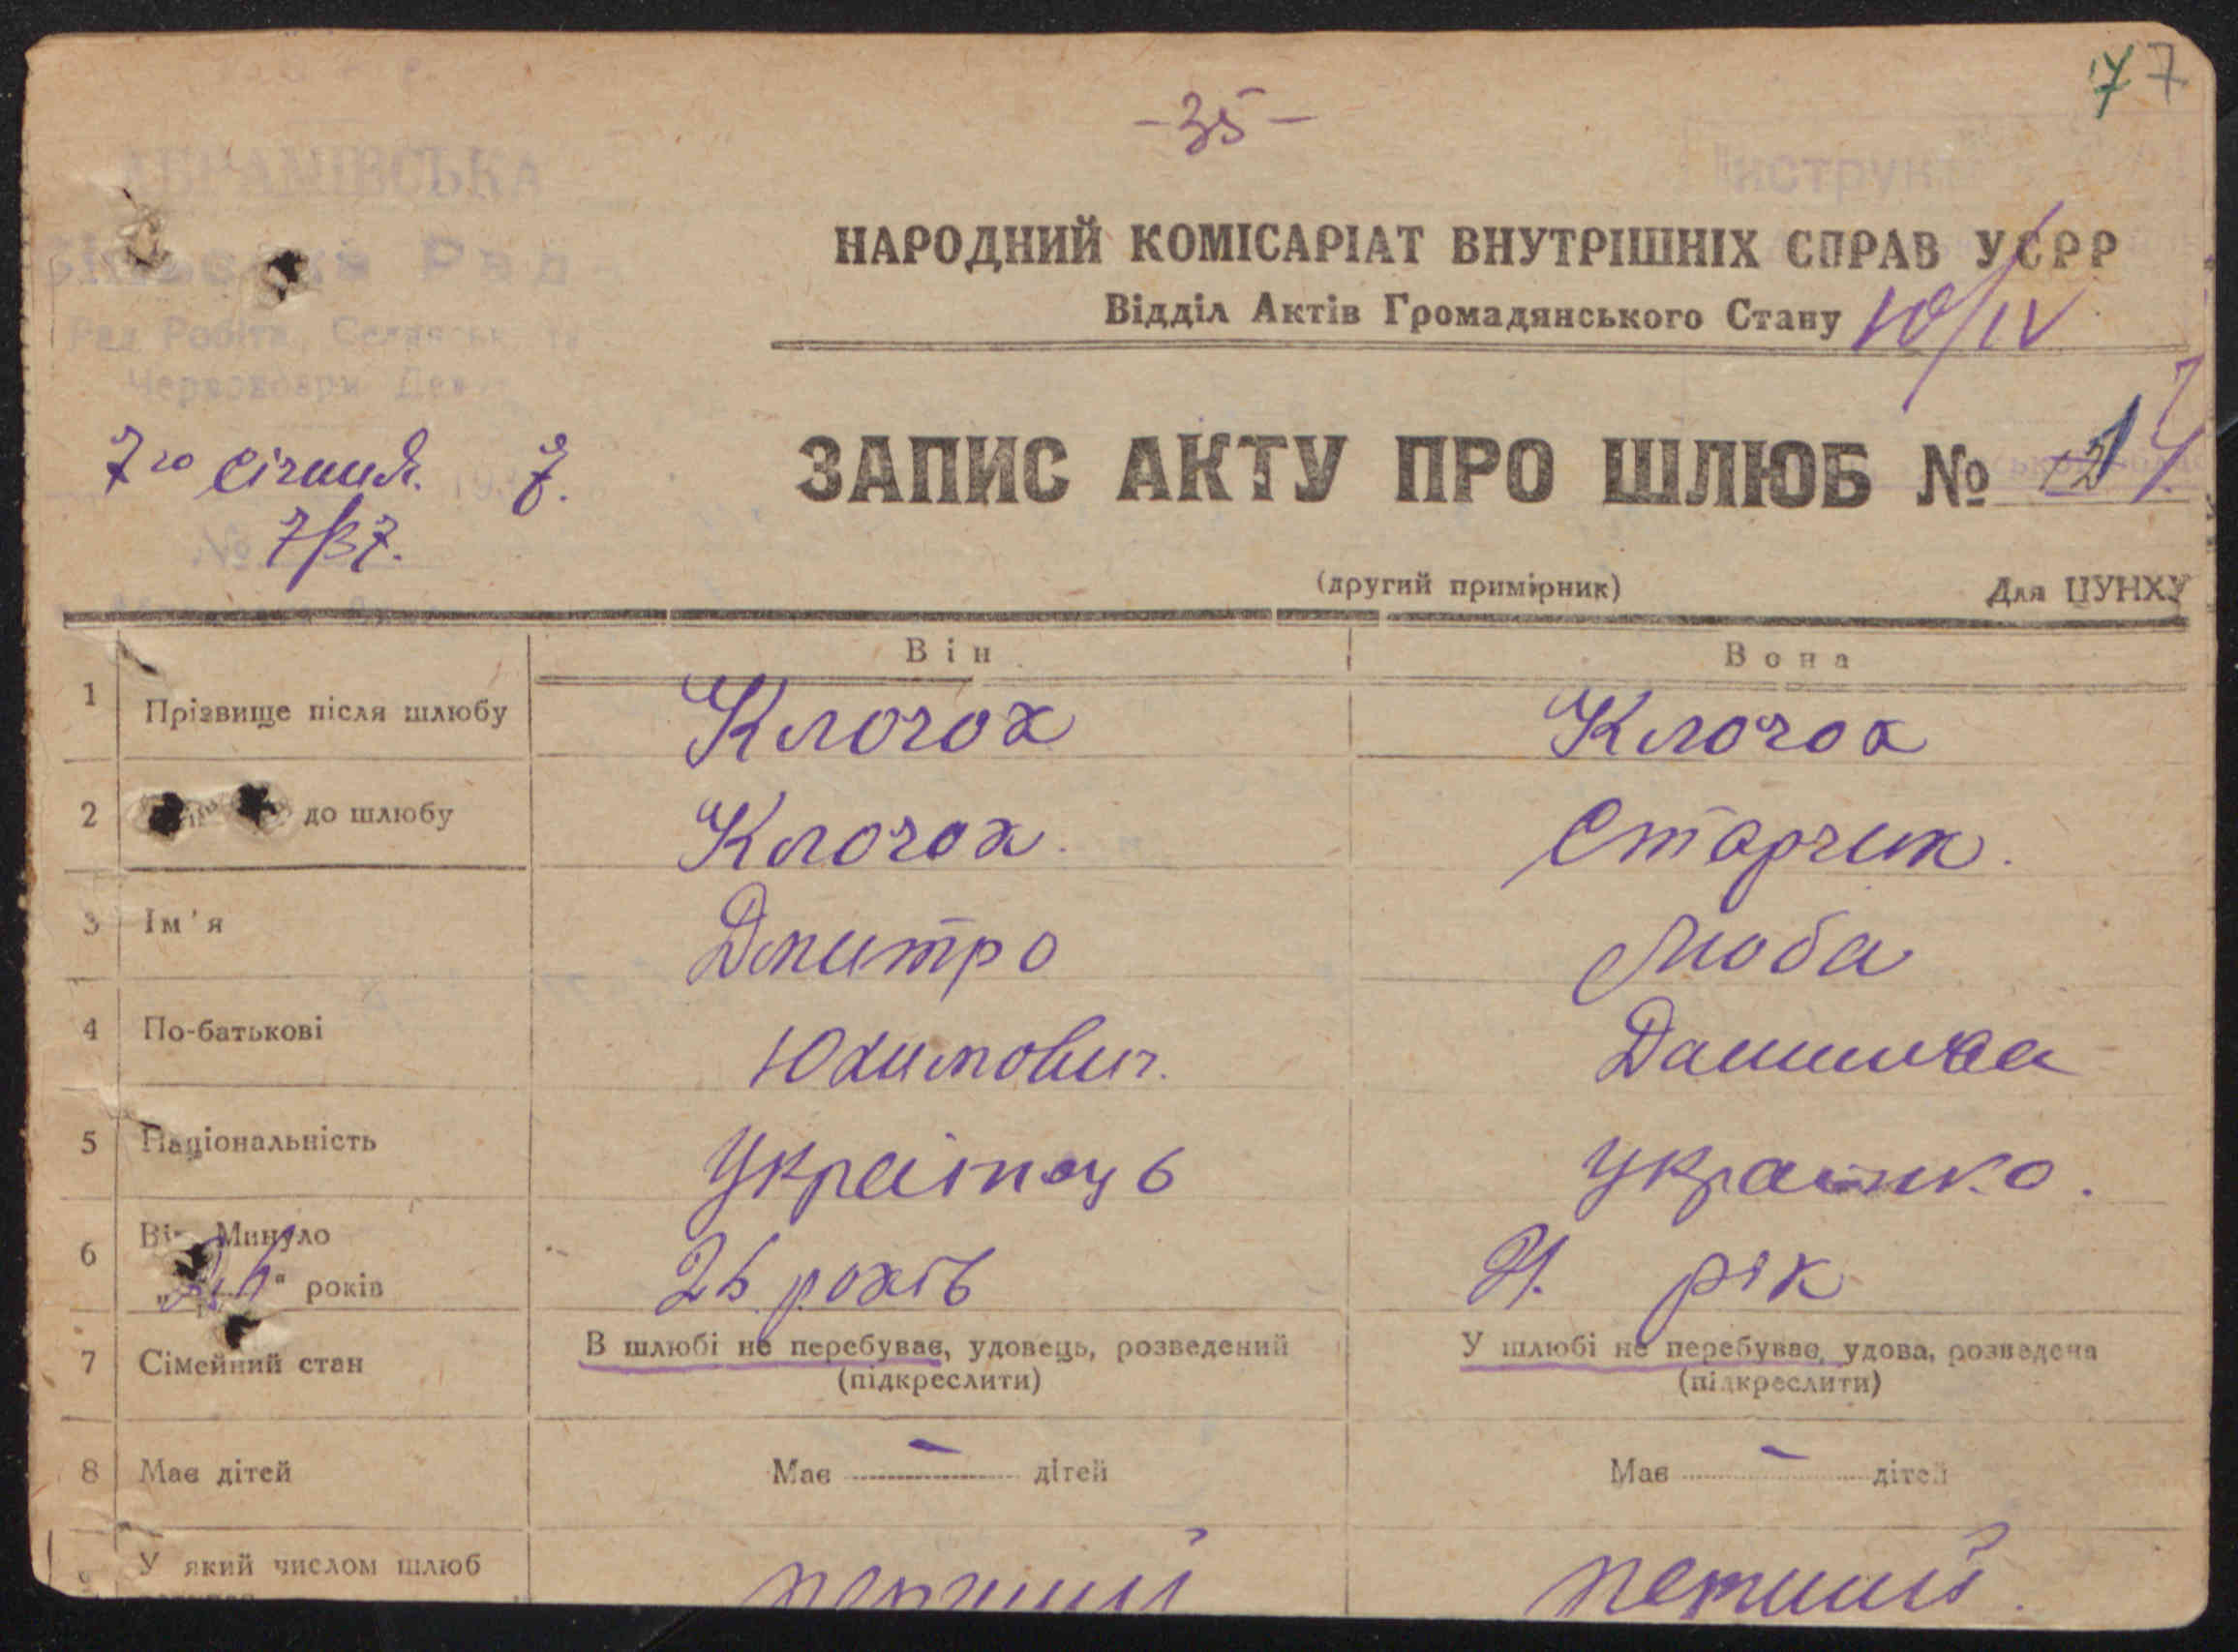 77
-35-
АБРАМІВСЬКА
Сільська Рада
Рад Робітн, Селянськ та
Червоноарм Деп
НАРОДНИЙ КОМІСАРІАТ ВНУТРІШНІХ СПРАВ УСРР
Відділ Актів Громадянського Стану
10/IV
7го січня. 7.
ЗАПИС АКТУ ПРО ШЛЮБ №
№
(другий примірник) Для ЦУНХУ
Він Вона
1 Прізвище після шлюбу Клочок Клочок
2 до шлюбу Клочок. Старчик.
3 Ім'я Дмитро Люба
4 По-батькові Юхимович.
5 Національність Українець Українка.
6 Вік Минуло
років 26 років 21. рік
7 Сімейний стан В шлюбі не перебуває, удовець, розведений У шлюбі не перебуває, удова, розведена
(підкреслити) (підкреслити)
8 Має дітей Має - дітей Має - дітей
У який числом шлюб перший перший.